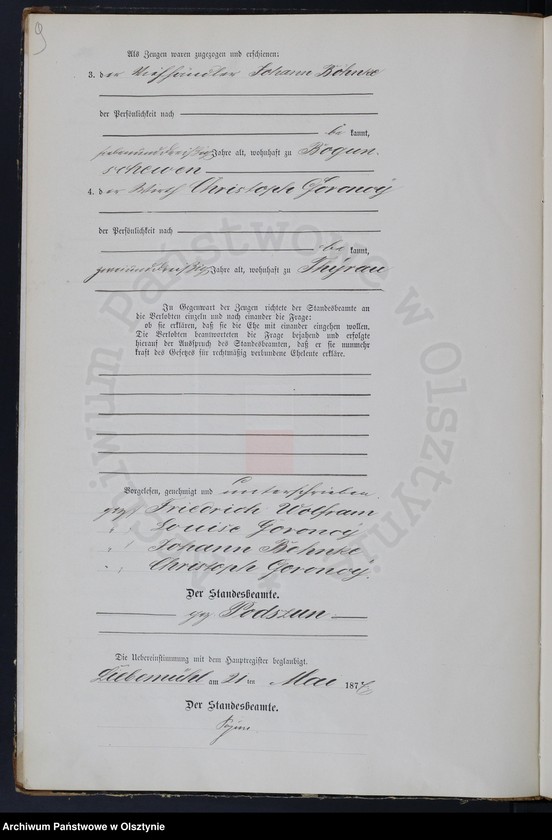 9
Als Zeugen waren zugezogen und erschienen:
3. der Johann Böhnke
der Persönlichkeit nach
be kannt,
siebenunddreißig Jahre alt, wohnhaft zu Bogun-
schewen
4. der Wirth Christoph Goroncy
der Persönlichkeit nach
be kannt,
Jahre alt, wohnhaft zu Thyrau
In Gegenwart der Zeugen richtete der Standesbeamte an
die Verlobten einzeln und nach einander die Frage:
ob sie erklären, daß sie die Ehe mit einander eingehen wollen.
Die Verlobten beantworteten die Frage bejahend und erfolgte
hierauf der Ausspruch des Standesbeamten, daß er sie nunmehr
kraft des Gesetzes für rechtmäßig verbundene Eheleute erkläre.
Vorgelesen, genehmigt und unterschrieben.
gez. Friedrich Wolfram
" Louise Goroncy
" Johann Böhnke
" Christoph Goroncy.
Der Standesbeamte.
gez. Podszun
Die Uebereinstimmung mit dem Hauptregister beglaubigt.
Liebemühl am 21 ten Mai 187
Der Standesbeamte.
Archiwum Państwowe w Olsztynie
Archiwum Państwowe w Olsztynie